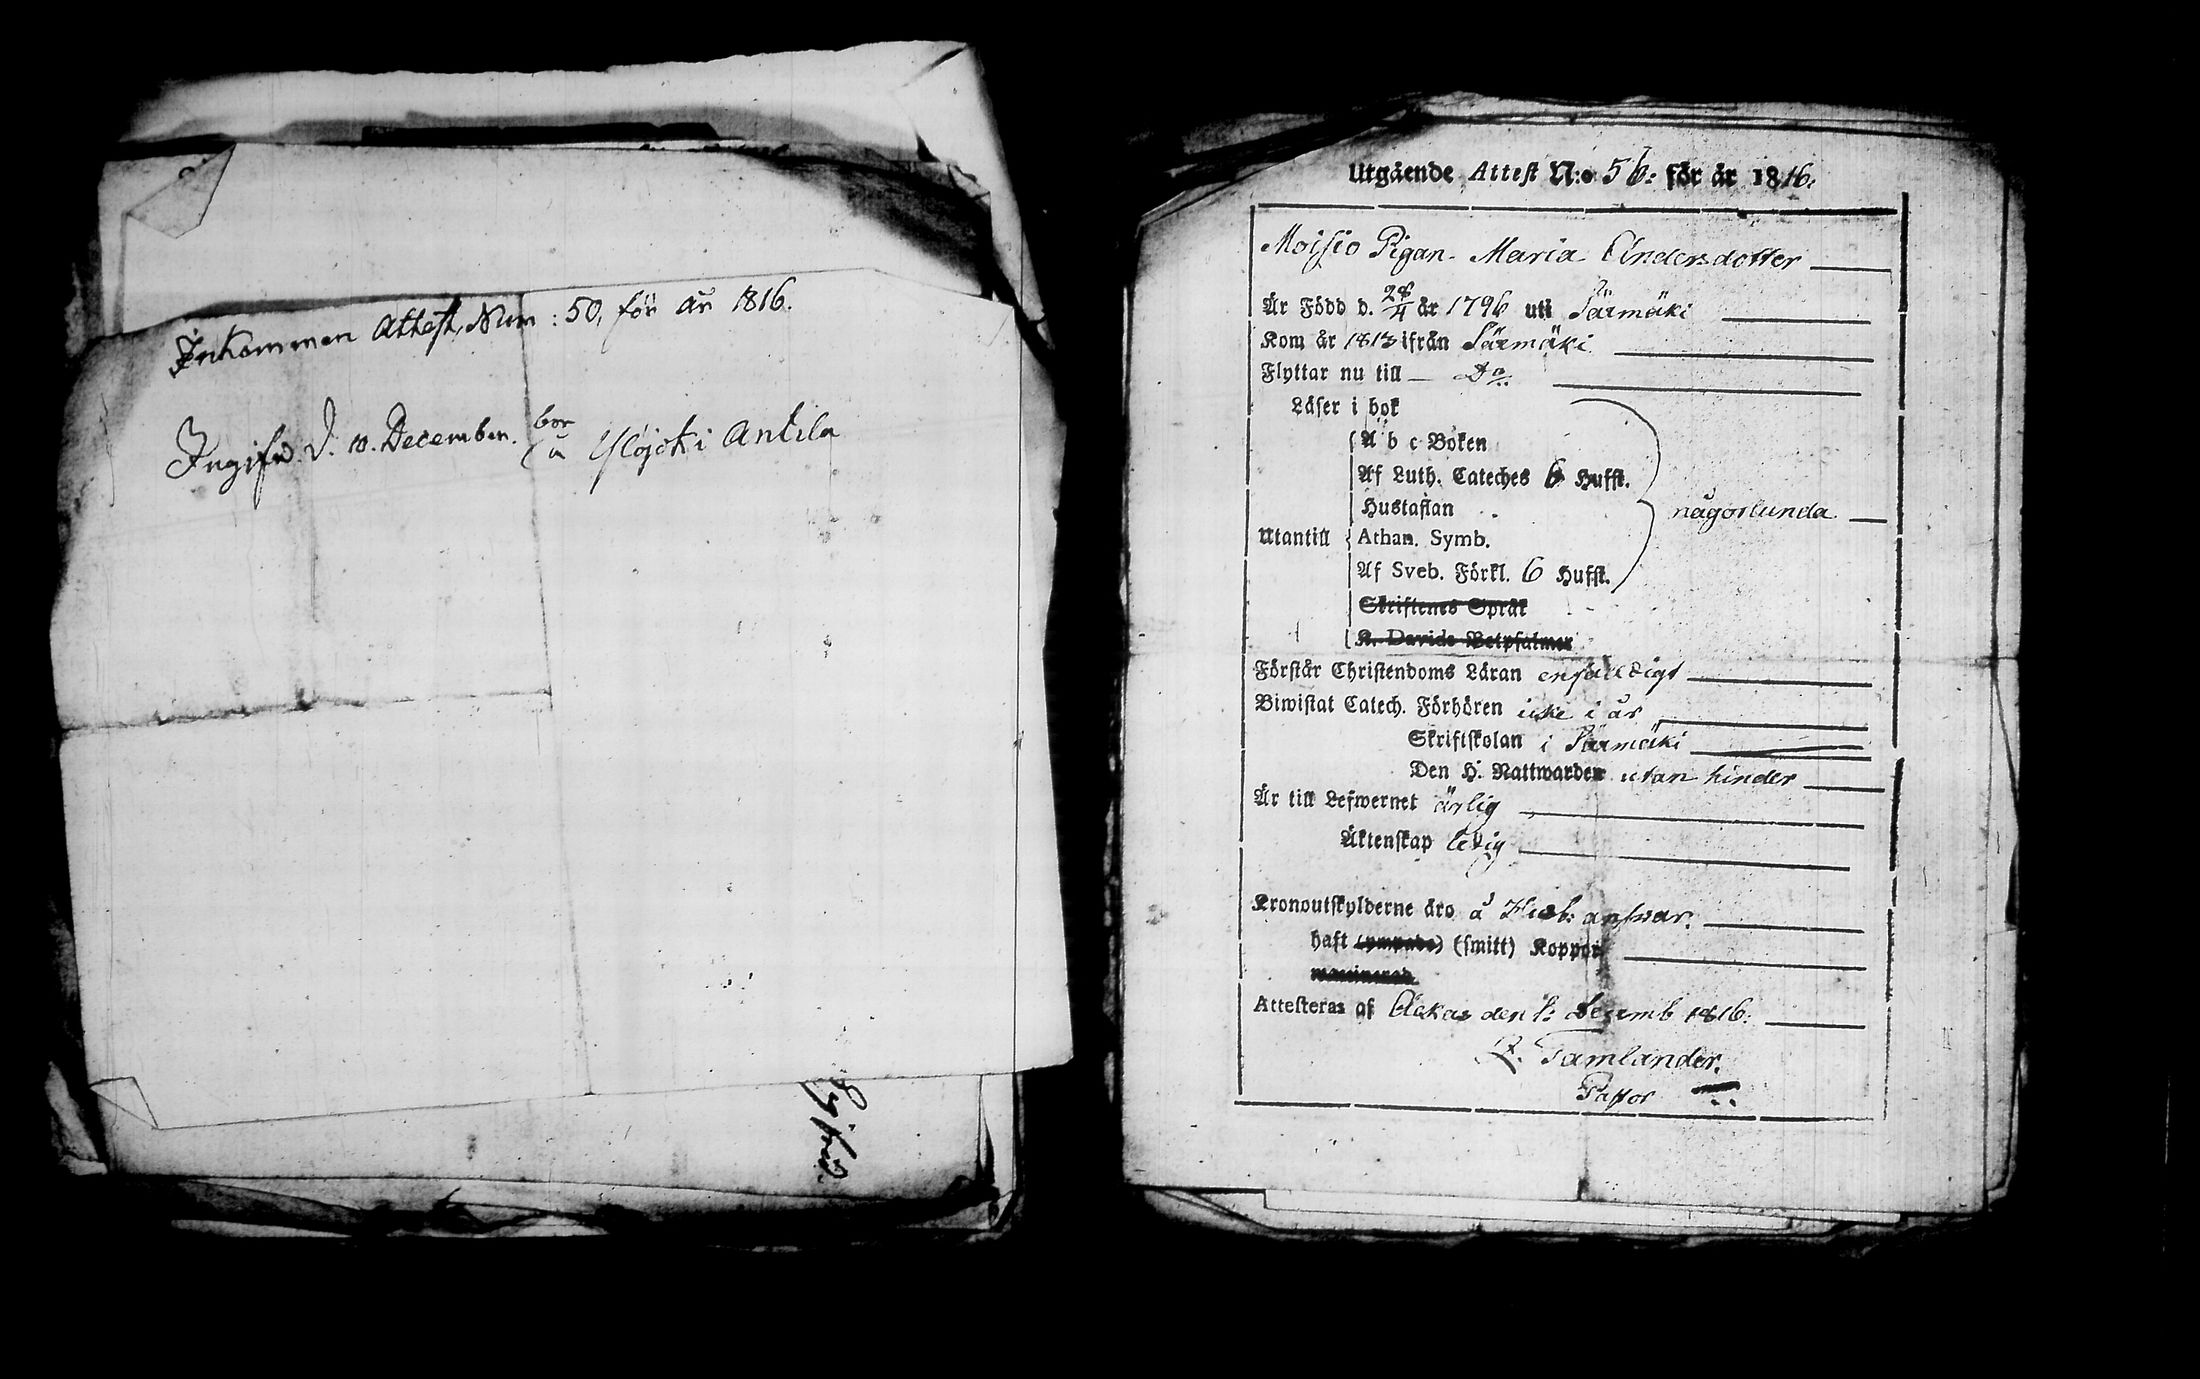 Inkommen Attest, Num: 50, för år 1816.
Ingifw. d. 10. December. bor å Ylöjoki Antila
Utgående Attest N:o 56: för år 1816.
Moisio Pigan Maria Andersdotter
Är Född d. 28/4 år 1796 uti Särmäki
Kom år 1813 ifrån Särmäki
Flyttar nu till Do
Läser i bok
A b c Boken
Af Luth. Cateches 6 Hufst.
Hustaflan
någorlunda
Utantill Athan. Symb.
Af Sveb. Förkl. 6 Hufst.
Skriftenes Språk
K. Davids Botpsalmer
Förstår Christendoms Läran enfalldigt
Biwistat Catech. Förhören icke i år
Skriftskolan i Särmäki
Den H. Nattwarden utan hinder
Är till Lefwernet ärlig
Äktenskap ledig
Kronoutskylderne äro å Husb: answar.
haft (smitt) Koppor
Attesteras af den Decemb 1816.
Tamlander.
Pastor